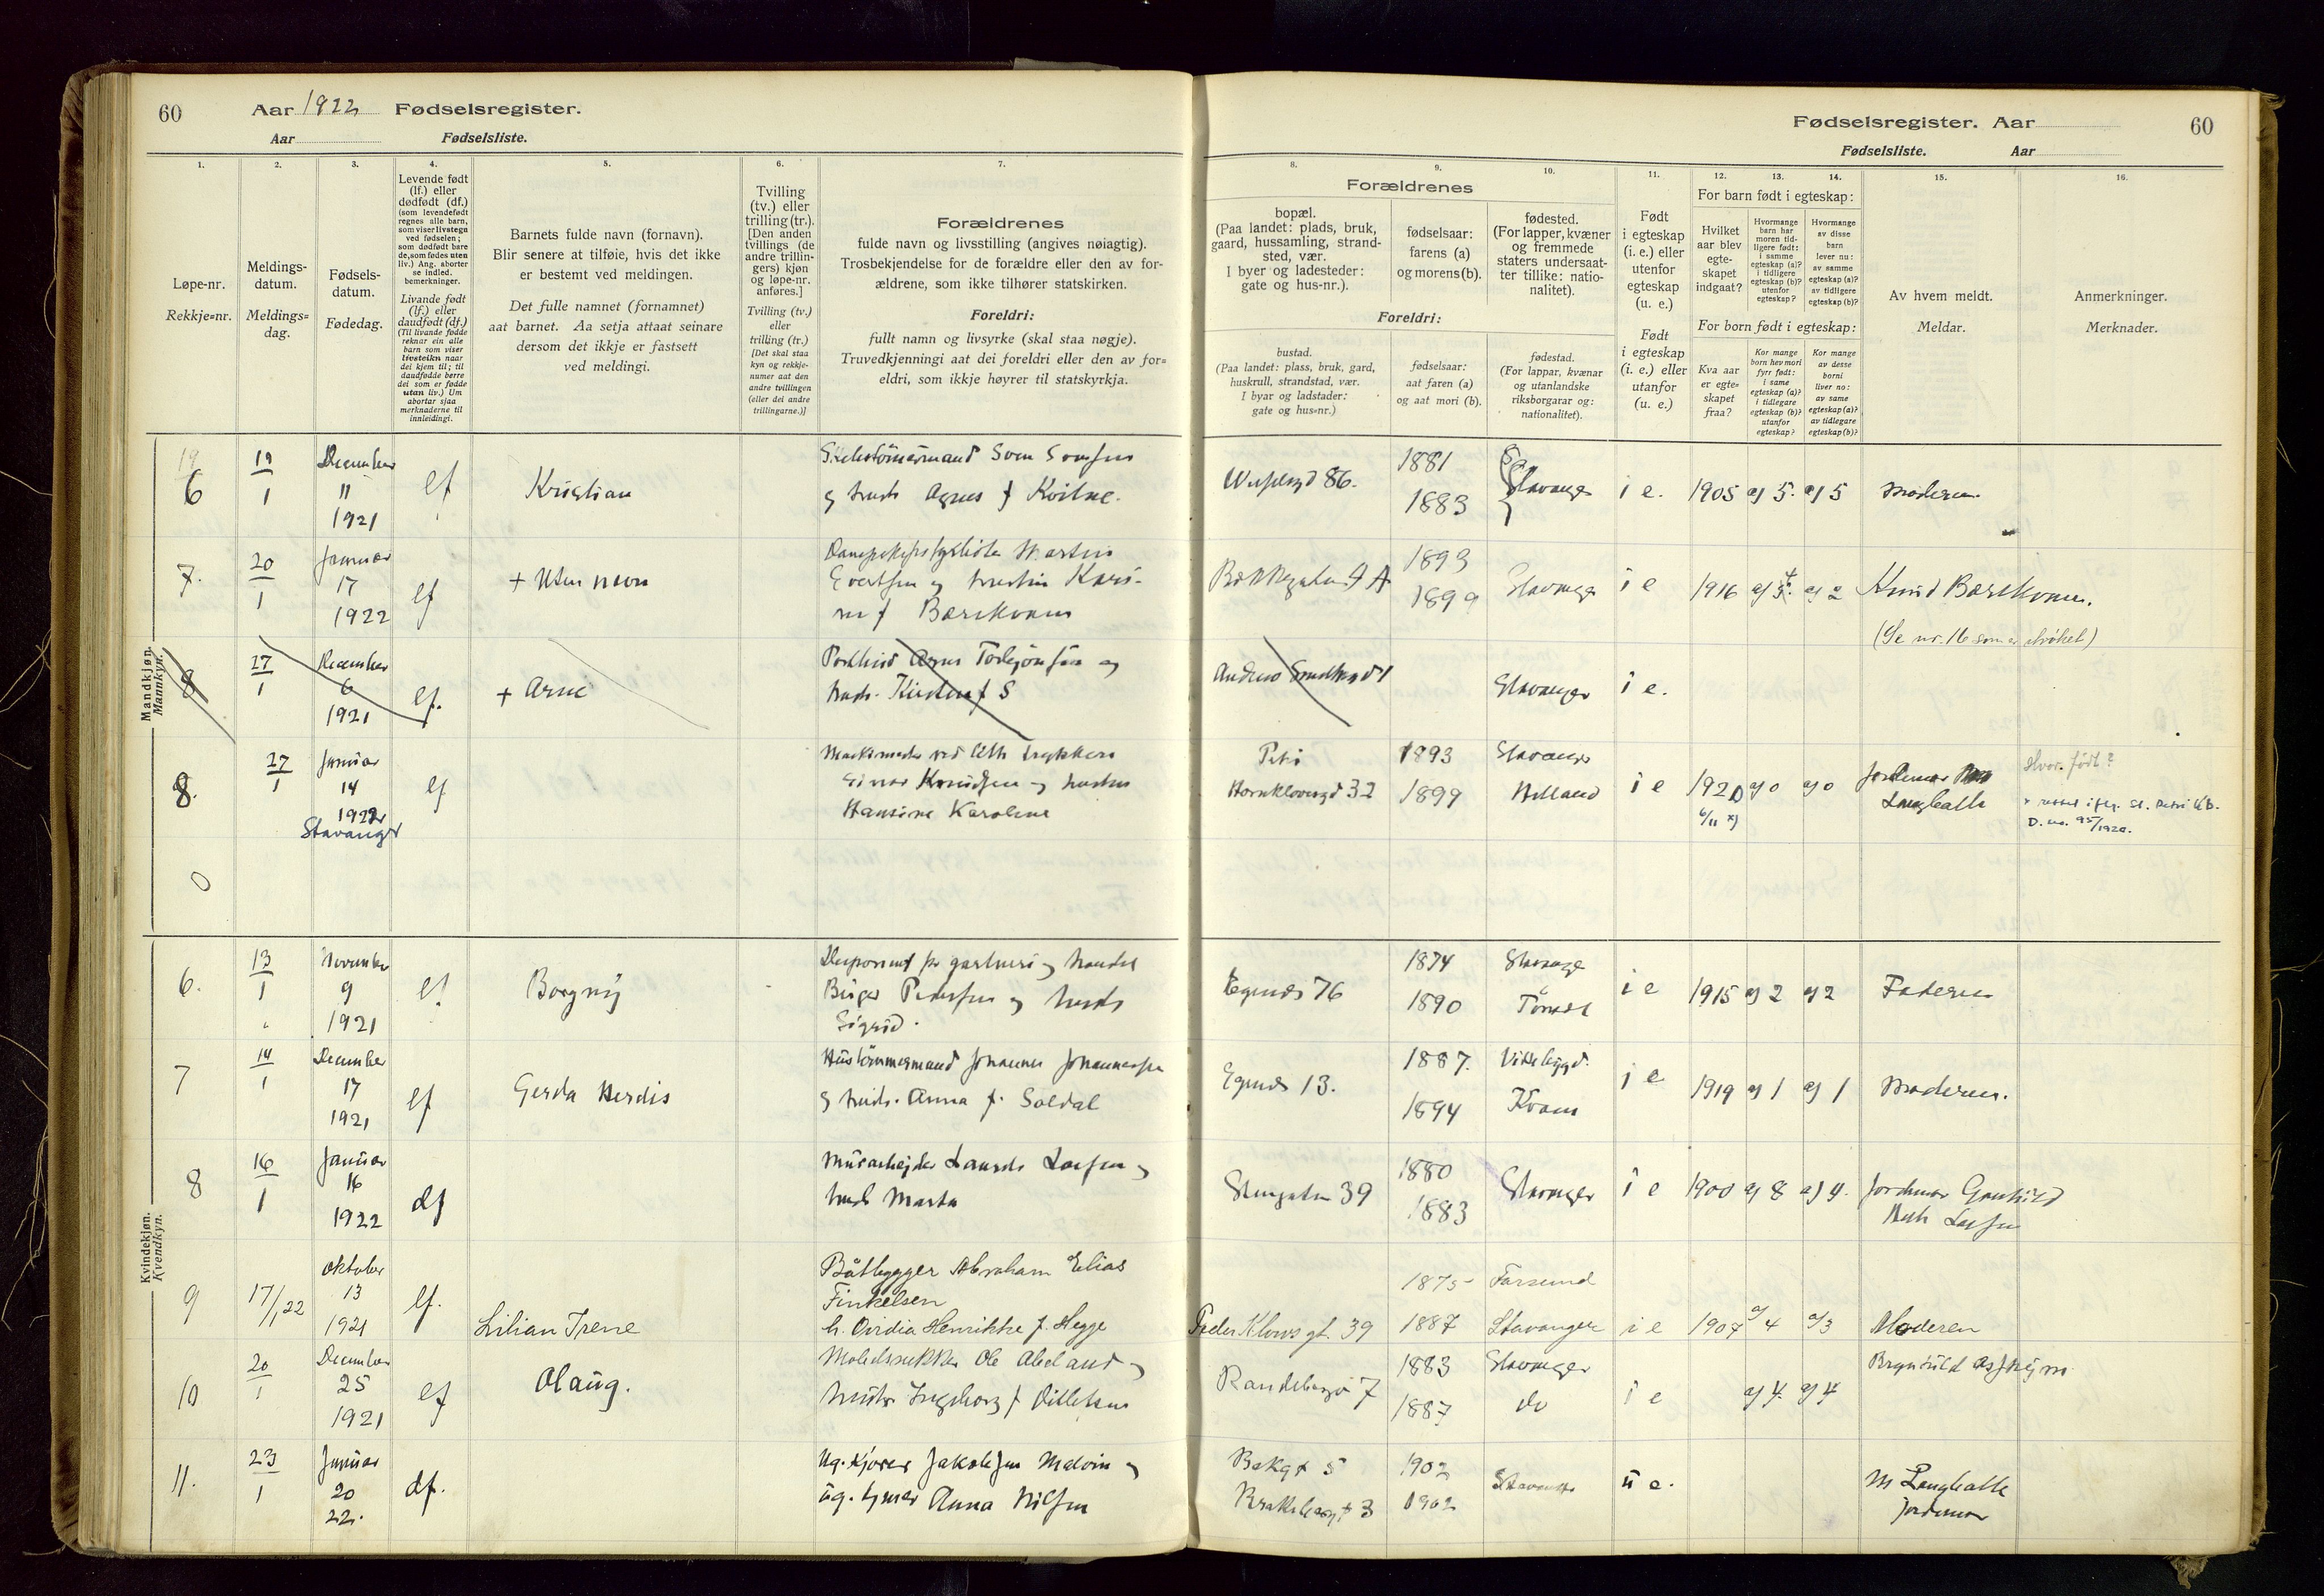 60 Aar 1922 Fødselsregister.
Aar Fødselsliste.
Fødselsregister. Aar 60
Fødselsliste. Aar
1. 2. 3. 4. 5. 6. 7. 8. 9. 10. 11. 12. 13. 14. 15. 16.
Løpe-nr.
Rekkje=nr.
Meldings-
datum.
Meldings=
dag.
Fødsels-
datum.
Fødedag.
Levende født
(lf.) eller
dødfødt (df.)
(som levendefødt
regnes alle barn,
som viser livstegn
ved fødselen;
som dødfødt bare
de, som fødes uten
liv.) Ang. aborter
se indled.
bemerkninger.
Livande født
(lf.) eller
daudfødt (df.)
(Til livande fødde
reknar ein alle
barn som viser
livsteikn naar
dei kjem til; til
daudfødde berre
dei som er fødde
utan liv.) Um
abortar sjaa
merknaderne til
innleidingi.
Barnets fulde navn (fornavn).
Blir senere at tilføie, hvis det ikke
er bestemt ved meldingen.
Det fulle namnet (fornamnet)
aat barnet. Aa setja attaat seinare
dersom det ikkje er fastsett
ved meldingi.
Tvilling
(tv.) eller
trilling (tr.).
[Den anden
tvillings (de
andre trillin-
gers) kjøn
og løpe-nr.
anføres.]
Tvilling (tv.)
eller
trilling (tr.)
[Det skal staa
kyn og rekkje-
numer aat den
andre tvillingen
(eller dei andre
trillingarne.)]
Forældrenes
fulde navn og livsstilling (angives nøiagtig).
Trosbekjendelse for de forældre eller den av for-
ældrene, som ikke tilhører statskirken.
Foreldri:
fullt namn og livsyrke (skal staa nøgje).
Truvedkjenningi aat dei foreldri eller den av for=
eldri, som ikkje høyrer til statskyrkja.
Forældrenes
bopæl.
(Paa landet: plads, bruk,
gaard, hussamling, strand-
sted, vær.
I byer og ladesteder:
gate og hus-nr.).
fødselsaar:
farens (a)
og morens (b).
fødested.
(For lapper, kvæner
og fremmede
staters undersaat-
ter tillike: natio-
nalitet).
Foreldri:
bustad.
(Paa landet: plass, bruk, gard,
huskrull, strandstad, vær.
I byar og ladstader:
gate og hus=nr.)
fødselsaar:
aat faren (a)
og aat mori (b).
fødestad.
(For lappar, kvænar
og utanlandske
riksborgarar og:
nationalitet).
Født
i egteskap
(i. e.) eller
utenfor
egteskap
(u. e.)
Født
i egteskap
(i. e.) eller
utanfor
(u. e.)
For barn født i egteskap:
Hvilket
aar blev
egte-
skapet
indgaat?
Hvormange
barn har
moren tid-
ligere født:
i samme
egteskap (a)?
i tidligere
egteskap (b)?
utenfor
egteskap?
Hvormange
av disse
barn
lever nu:
av samme
egteskap (a)?
av tidligere
egteskap (b)?
For born født i egteskap:
Kva aar
er egte=
skapet
fraa?
Kor mange
born hev mori
fyrr født:
i same
egteskap (a)?
i tidlegare
egteskap (b)?
utanfor
egteskap?
Kor mange
av desse
borni
liver no:
av same
egteskap (a)?
av tidlegare
egteskap (b)?
Av hvem meldt.
Meldar.
Anmerkninger.
Merknader.
Mandkjøn.
Mannkyn.
6 19/1 December 11 1921 lf Kristian
og hust. Agnes f Kvilne.
86. 1881 1883 Stavanger i e. 1905 a) 5. a) 5 Moderen
7. 20/1 Januar 17 1922 lf + Uten navn
Martin
Evertsen og hustru Kari-
ne f Barkvam
1893 1899 Stavanger i e 1916 a) 2 Knud Barkvam.
(Se nr. 16 som er strøket)
8 27/1 December 6 1921 lf. + Arne
Torbjörnsen og
hust. Kirsten f S
Stavanger i e.
8. 27/1 Januar 14 1922 Stavanger lf
Einar Knudsen og hustru
Hansine Karoline
Petri
Hornklovesgd 32 1893 1899 Stavanger Hilland i e 1920 6/11 x) a) 0 a) 0 Jordmor
Langhalle
Hvor født?
D. no. 95/1920.
0
Kvindekjøn.
Kvendkyn.
6. 13/1 November 9 1921 lf Borgny
Disponent for gartneri og handel
Birger Pedersen og hust
Sigrid.
Egends 76 1874 1890 Stavanger i e 1915 a) 2 a) 2 Faderen
7 14/1 December 17 1921 lf Gerda Herdis
Hustömmermand Johannes Johannessen
og hust. Anna f. Soldal
Egends 13. 1887. 1894 Vikebygd. Kvam i e 1919 a) 1 a) 1 Moderen.
8 16/1 Januar 16 1922 df
Murarbejder Laurits Larsen og
hust Marta
Stengaten 39 1880 1883 Stavanger i e 1900 a) 8 a) 4. Jordmor Gunhild
Larsen
9 17/1 22 Oktober 13 1921 lf. Lilian Irene
Båtbygger Abraham Elias
Finkelsen
h. Ovidia Henrikke f. Hegge
Peder Klows gt. 39 1875 1887 Farsund Stavanger i e 1907 a) 4 a) 3 Moderen
10 20/1 December 25 1921 lf Olaug.
Ole Abeland og
hustr Ingeborg f Ditlefsen
7 1883 1887 Stavanger do i e a) 4. a) 4
11. 23/1 Januar 20 22. df.
Ug. kjører Jakobsen Melvin og
ug. Anna Nilsen
Bakgt 5 1902 1902 Stavanger u e. M Langhalle
jordmor